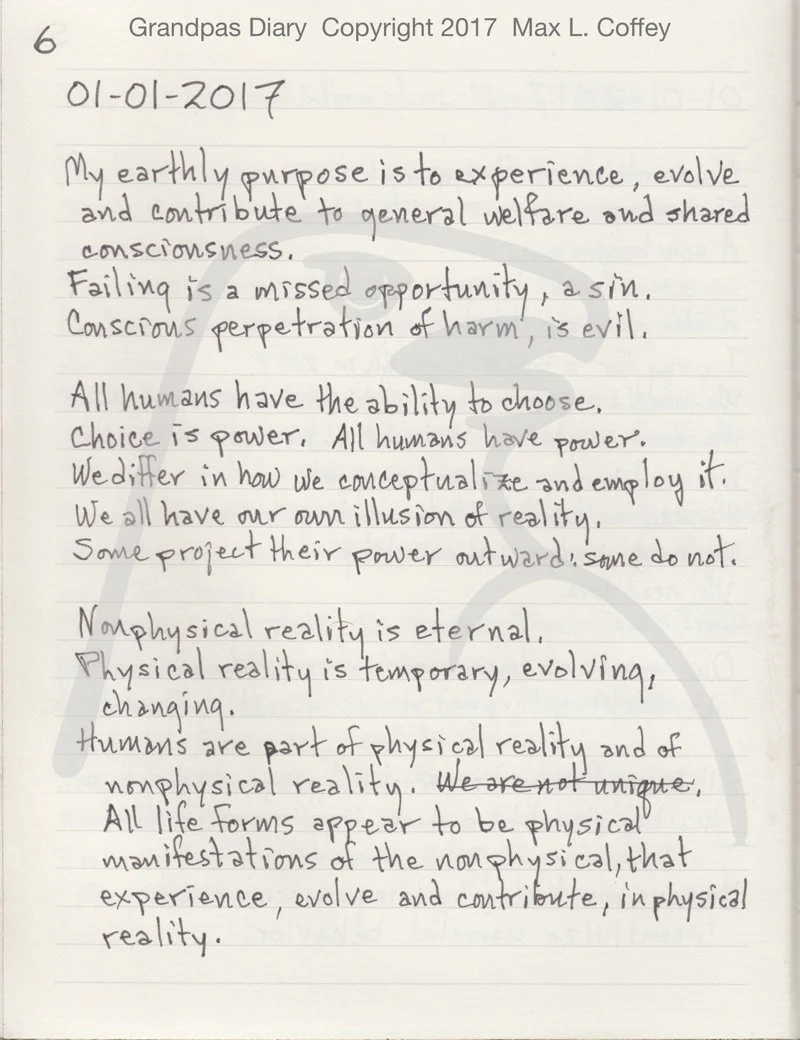 Grandpas Diary Copyright 2017 Max L. Coffey
6
01-01-2017
My earthly purpose is to experience, evolve
and contribute to general welfare and shared
consciousness.
Failing is a missed opportunity, a sin.
Conscious perpetration of harm, is evil.
All humans have the ability to choose.
Choice is power. All humans have power.
We differ in how we conceptualize and employ it.
We all have our own illusion of reality.
Some project their power outward; some do not.
Nonphysical reality is eternal.
Physical reality is temporary, evolving,
changing.
Humans are part of physical reality and of
nonphysical reality. We are not unique.
All life forms appear to be physical
manifestations of the nonphysical, that
experience, evolve and contribute, in physical
reality.